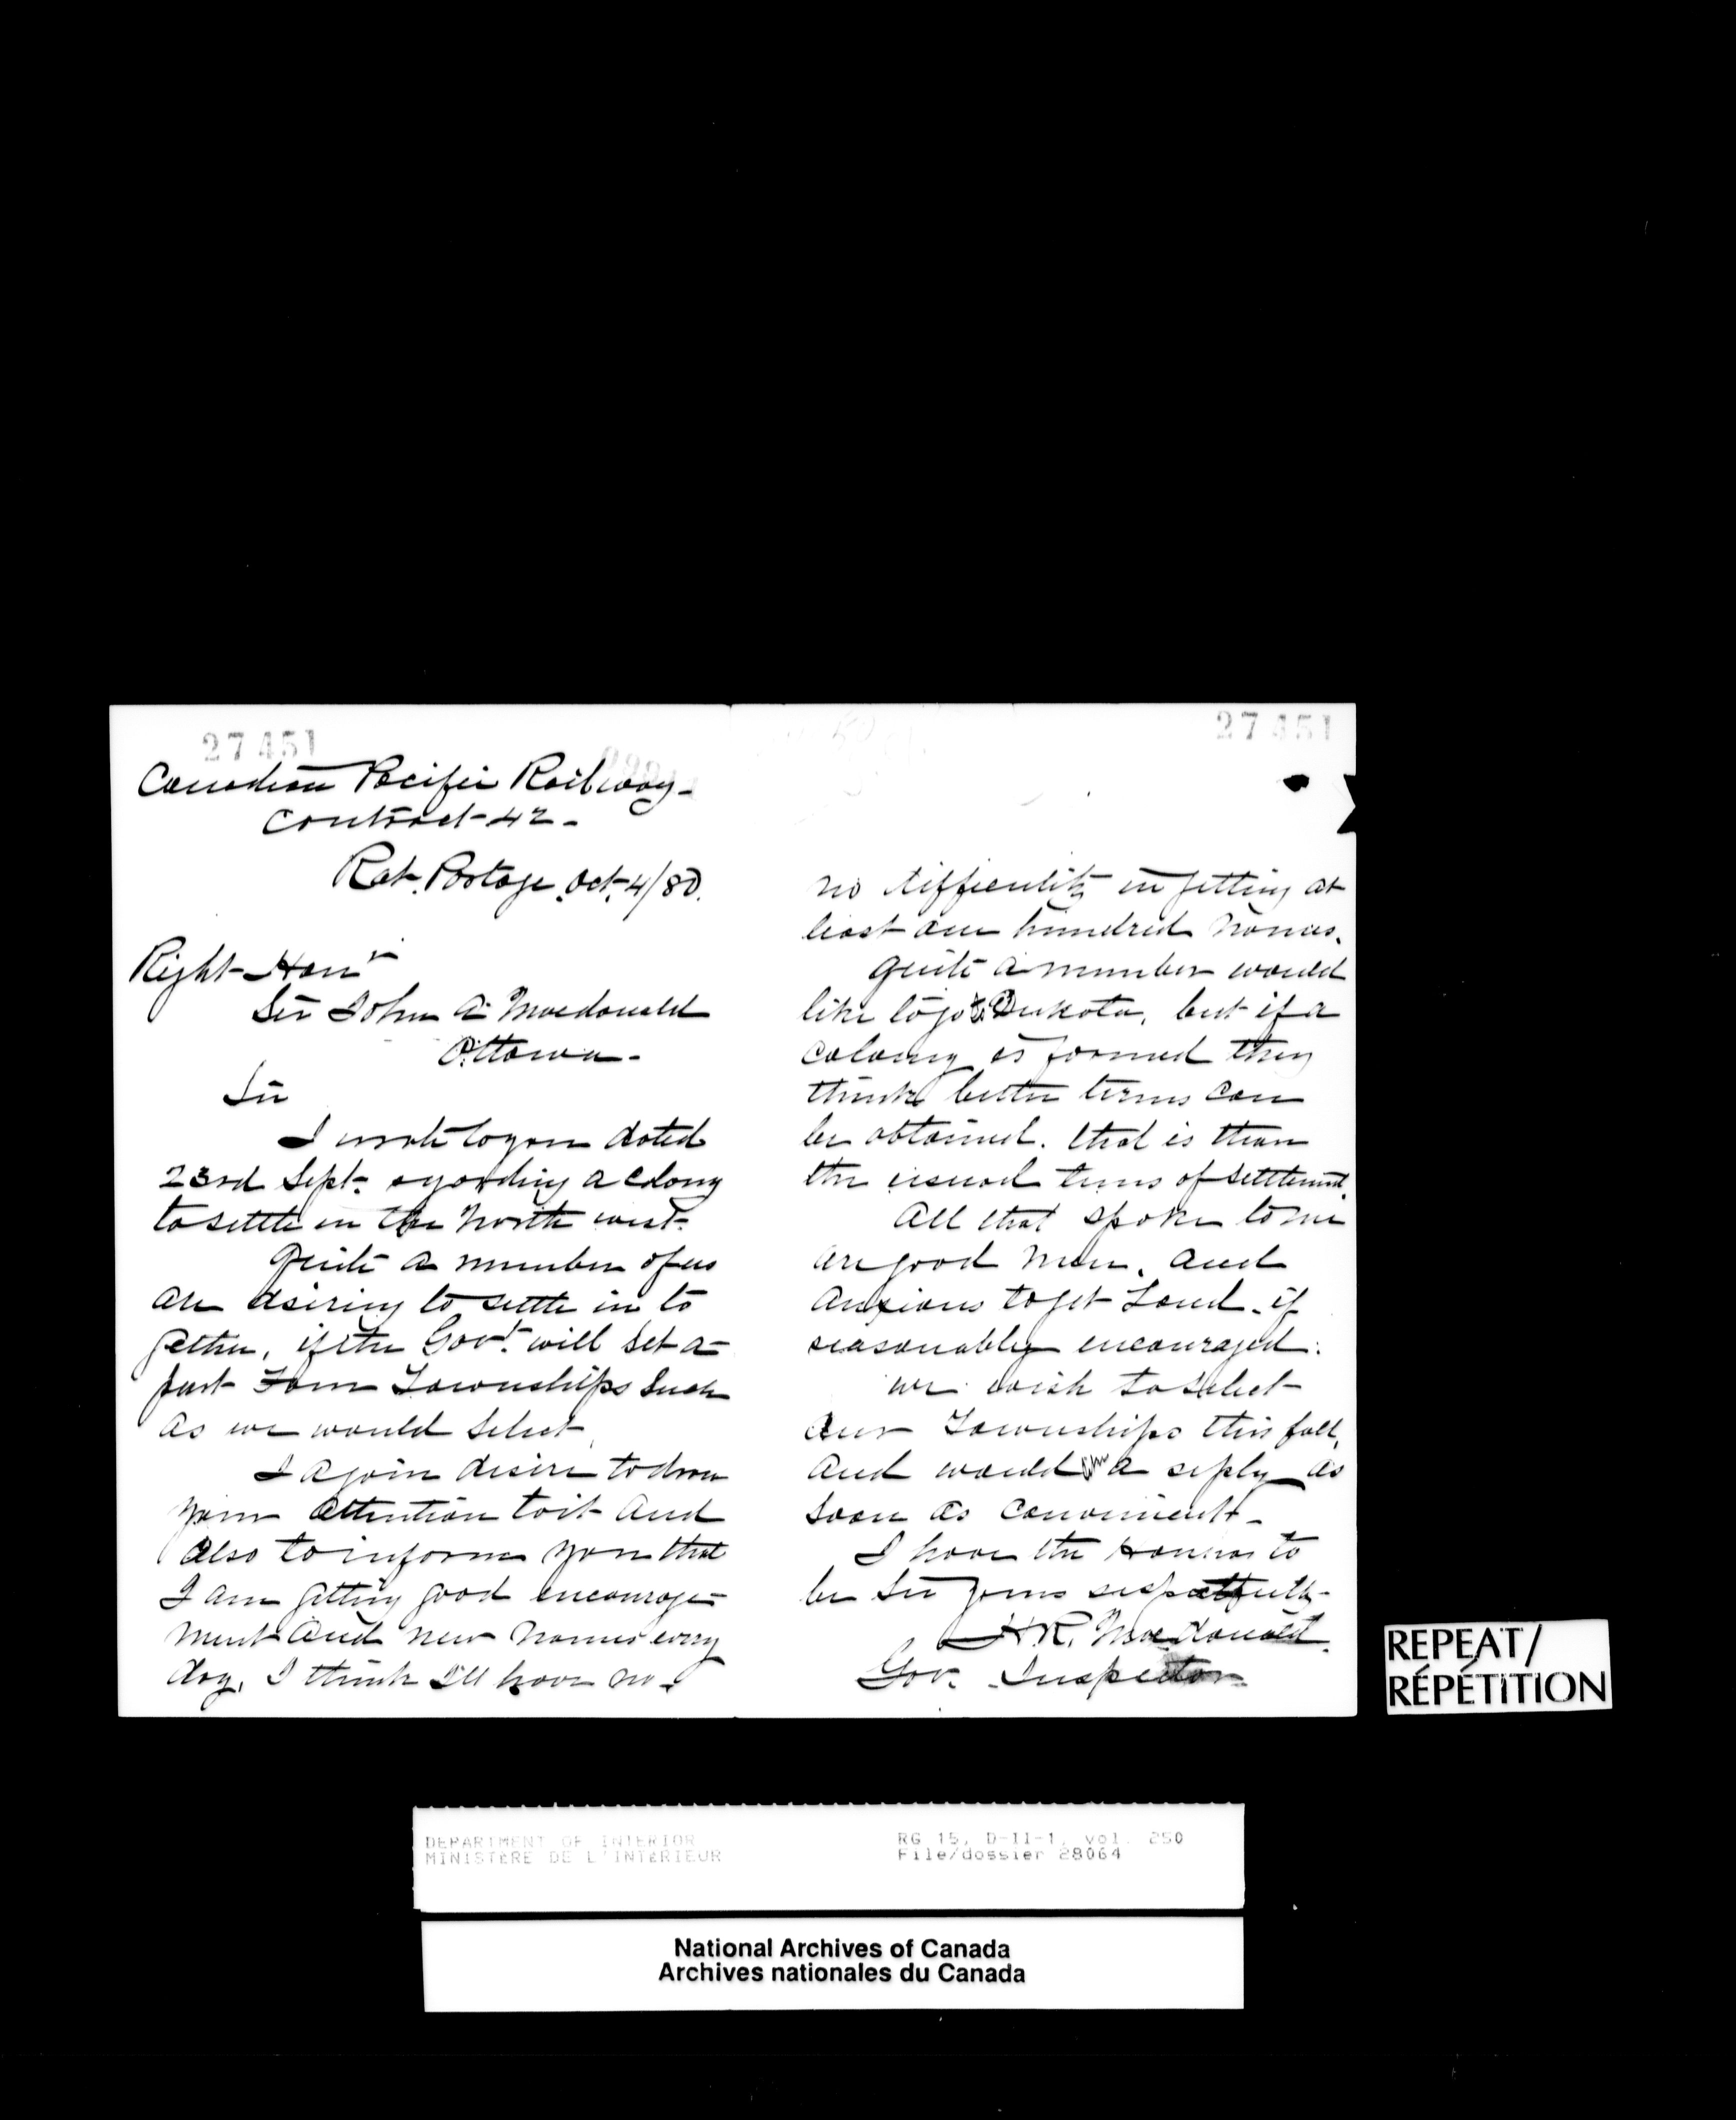 27451
Canadian Pacific Railway-
Contract 42-
Rat Portage Oct 4/80.
Right Hon
Sir John A Macdonald
Ottawa-
Sir
I wrote to you dated
23rd Sept. regarding a Colony
to settle in the North west.
Quite a number of us
are desiring to settle in to
gether, if the Govt. will set a-
part Four Townships Such
as we would select
I again desire to draw
your attention to it and
also to inform you that
I am getting good encourage-
ment and new names every
day, I think I'll have no-
27451
no difficulity in getting at
least one hundred names.
Quite a number would
like to go to Dakota, but if a
colony is formed they
think better terms can
be obtained. that is than
the usual terms of settlement.
All that spoke to me
are good men, and
anxious to get Land. if
reasonably encouraged.
we wish to select
our Townships this fall,
and would a reply as
soon as convenient-
I have the honour to
be Sir yours respectfully-
H.R. Macdonald.
Gov. Inspector
REPEAT/
RÉPÉTITION
DEPARTMENT OF INTERIOR
MINISTÈRE DE L'INTÉRIEUR
RG 15, D-II-1, vol. 250
File/dossier 28064
National Archives of Canada
Archives nationales du Canada